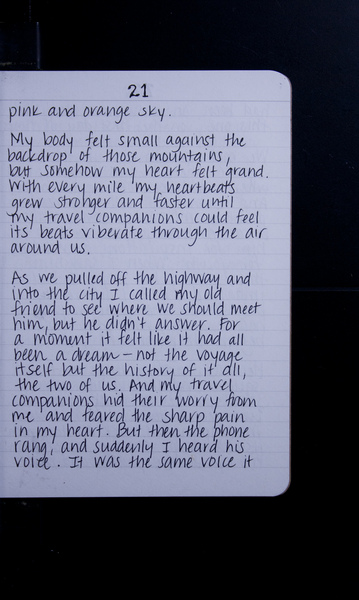 21
pink and orange sky.
My body felt small against the
backdrop of those mountains,
but somehow my heart felt grand.
With every mile my heartbeats
grew stronger and faster until
my travel companions could feel
its beats viberate through the air
around us.
As we pulled off the highway and
into the city I called my old
friend to see where we should meet
him, but he didn't answer. For
a moment it felt like it had all
been a dream - not the voyage
itself but the history of it all,
the two of us. And my travel
companions hid their worry from
me and feared the sharp pain
in my heart. But then the phone
rang, and suddenly I heard his
voice. It was the same voice it